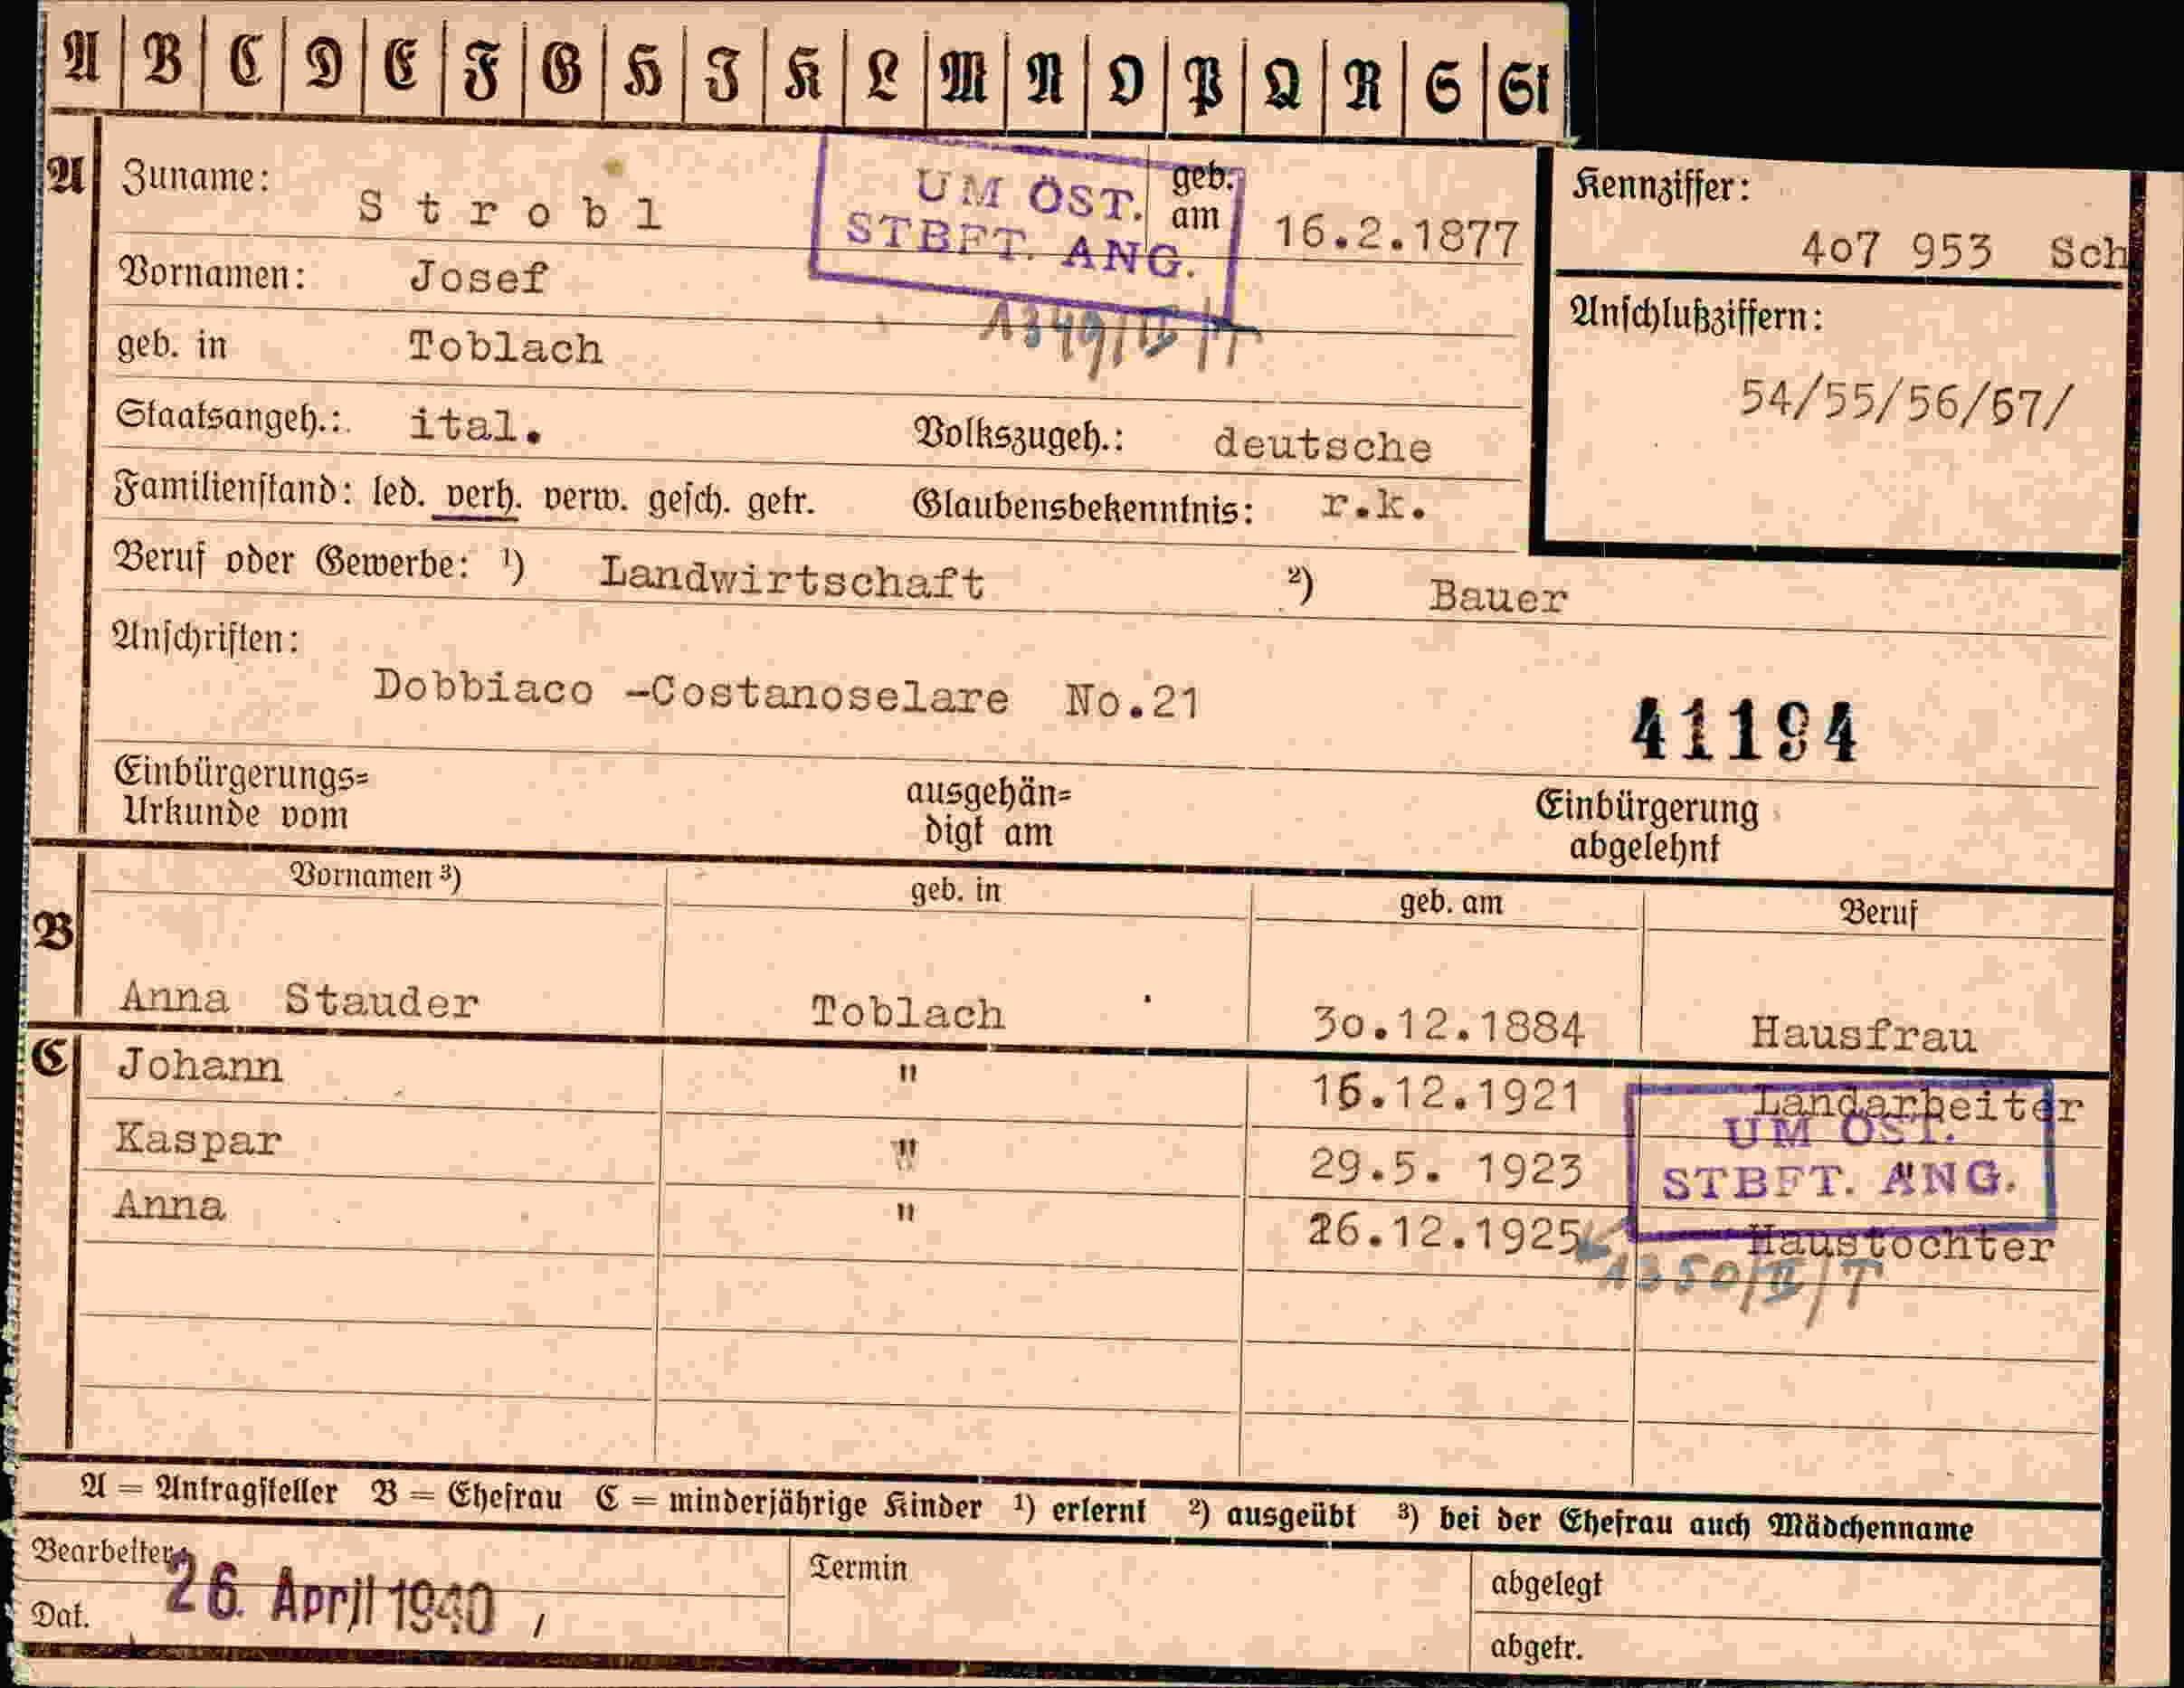 A B C D E F G H I K L M N O P Q R S St
A
Zuname: Strobl
geb. am 16.2.1877
UM ÖST.
STBFT. ANG.
Kennziffer:
407 953 Sch
Vornamen: Josef
1349/II/T
Anschlußziffern:
54/55/56/57/
geb. in Toblach
Staatsangeh.: ital. Volkszugeh.: deutsche
Familienstand: led. verh. verw. gesch. getr. Glaubensbekenntnis: r.k.
Beruf oder Gewerbe: ¹) Landwirtschaft ²) Bauer
Anschriften:
Dobbiaco -Costanoselare No.21
41194
Einbürgerungs=
Urkunde vom
ausgehän=
digt am
Einbürgerung
abgelehnt
B
Vornamen ³) geb. in geb. am Beruf
Anna Stauder Toblach 30.12.1884 Hausfrau
C
Johann " 16.12.1921 Landarbeiter
Kaspar " 29.5. 1923 "
Anna " 26.12.1925 Haustochter
UM ÖST.
STBFT. ANG.
1350/II/T
A = Antragsteller B = Ehefrau C = minderjährige Kinder ¹) erlernt ²) ausgeübt ³) bei der Ehefrau auch Mädchenname
Bearbeiter:
Dat. 26. April 1940
Termin
abgelegt
abgetr.